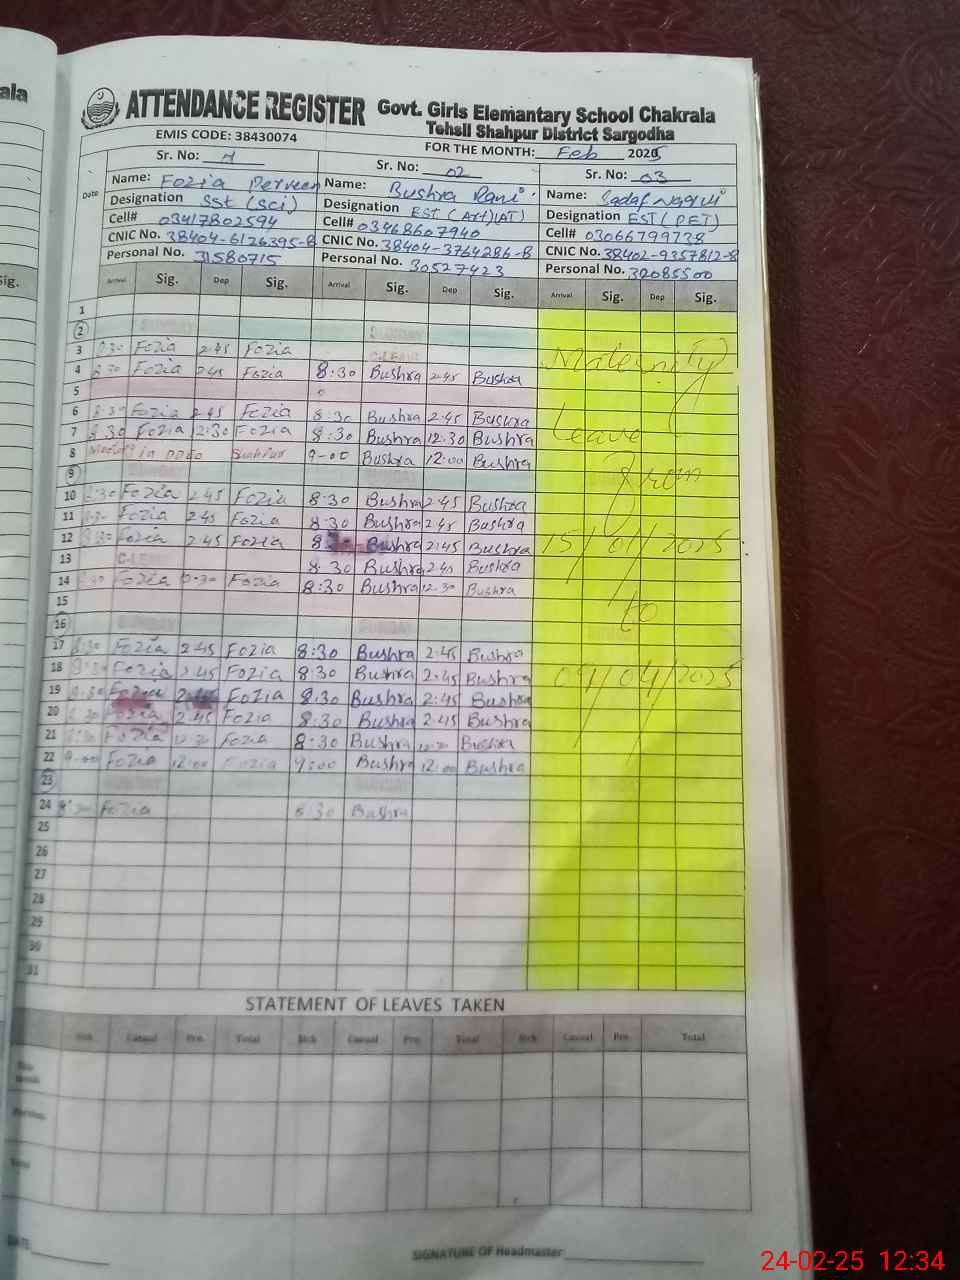 ala
ATTENDANCE REGISTER Govt. Girls Elemantary School Chakrala
Tehsil Shahpur District Sargodha
EMIS CODE: 38430074 FOR THE MONTH: Feb 2025
Sr. No: Sr. No: 02 Sr. No: 03
Date Name: Fozia Perveen Name: Bushra Rani Name: Sadaf
Designation SSt (Sci) Designation EST (Art)(AT) Designation EST (PET)
Cell# 03417802594 Cell# 03468607940 Cell# 03066799738
CNIC No. 38404-6126395-8 CNIC No. 38404-3764286-8 CNIC No. 38402-9357812-8
Personal No. 31580715 Personal No. 30527423 Personal No. 32085500
Sig.
Arrival Sig. Dep Sig. Arrival Sig. Dep Sig. Arrival Sig. Dep Sig.
1
2 SUNDAY SUNDAY
3 8:30 Fozia 2:45 Fozia C-LEAVE
4 8:30 Fozia 2:45 Fozia 8:30 Bushra 2:45 Bushra
5
6 8:30 Fozia 2:45 Fozia 8:30 Bushra 2:45 Bushra
7 8:30 Fozia 12:30 Fozia 8:30 Bushra 12:30 Bushra
8 in Shahpur 9-00 Bushra 12:00 Bushra
9 SUNDAY SUNDAY
10 8:30 Fozia 2:45 Fozia 8:30 Bushra 2:45 Bushra
11 8:30 Fozia 2:45 Fozia 8:30 Bushra 2:45 Bushra
12 8:30 Fozia 2:45 Fozia 8:30 Bushra 2:45 Bushra
13 C-LEAVE 8:30 Bushra 2:45 Bushra
14 8:30 Fozia 12:30 Fozia 8:30 Bushra 12:30 Bushra
15
16 SUNDAY SUNDAY
17 8:30 Fozia 2:45 Fozia 8:30 Bushra 2:45 Bushra
18 8:30 Fozia 2:45 Fozia 8:30 Bushra 2:45 Bushra
19 8:30 Fozia 2:45 Fozia 8:30 Bushra 2:45 Bushra
20 8:30 Fozia 2:45 Fozia 8:30 Bushra 2:45 Bushra
21 8:30 Fozia 12:30 Fozia 8:30 Bushra 12:30 Bushra
22 9-00 Fozia 12:00 Fozia 9:00 Bushra 12:00 Bushra
23 SUNDAY SUNDAY SUNDAY
24 8:30 Fozia 8:30 Bushra
25
26
27
28
29
30
31
Maternity
Leave
From
15/01/2025
to
STATEMENT OF LEAVES TAKEN
Sick Casual Pre. Total Sick Casual Pre. Total Sick Casual Pre. Total
DATE SIGNATURE OF Headmaster
24-02-25 12:34